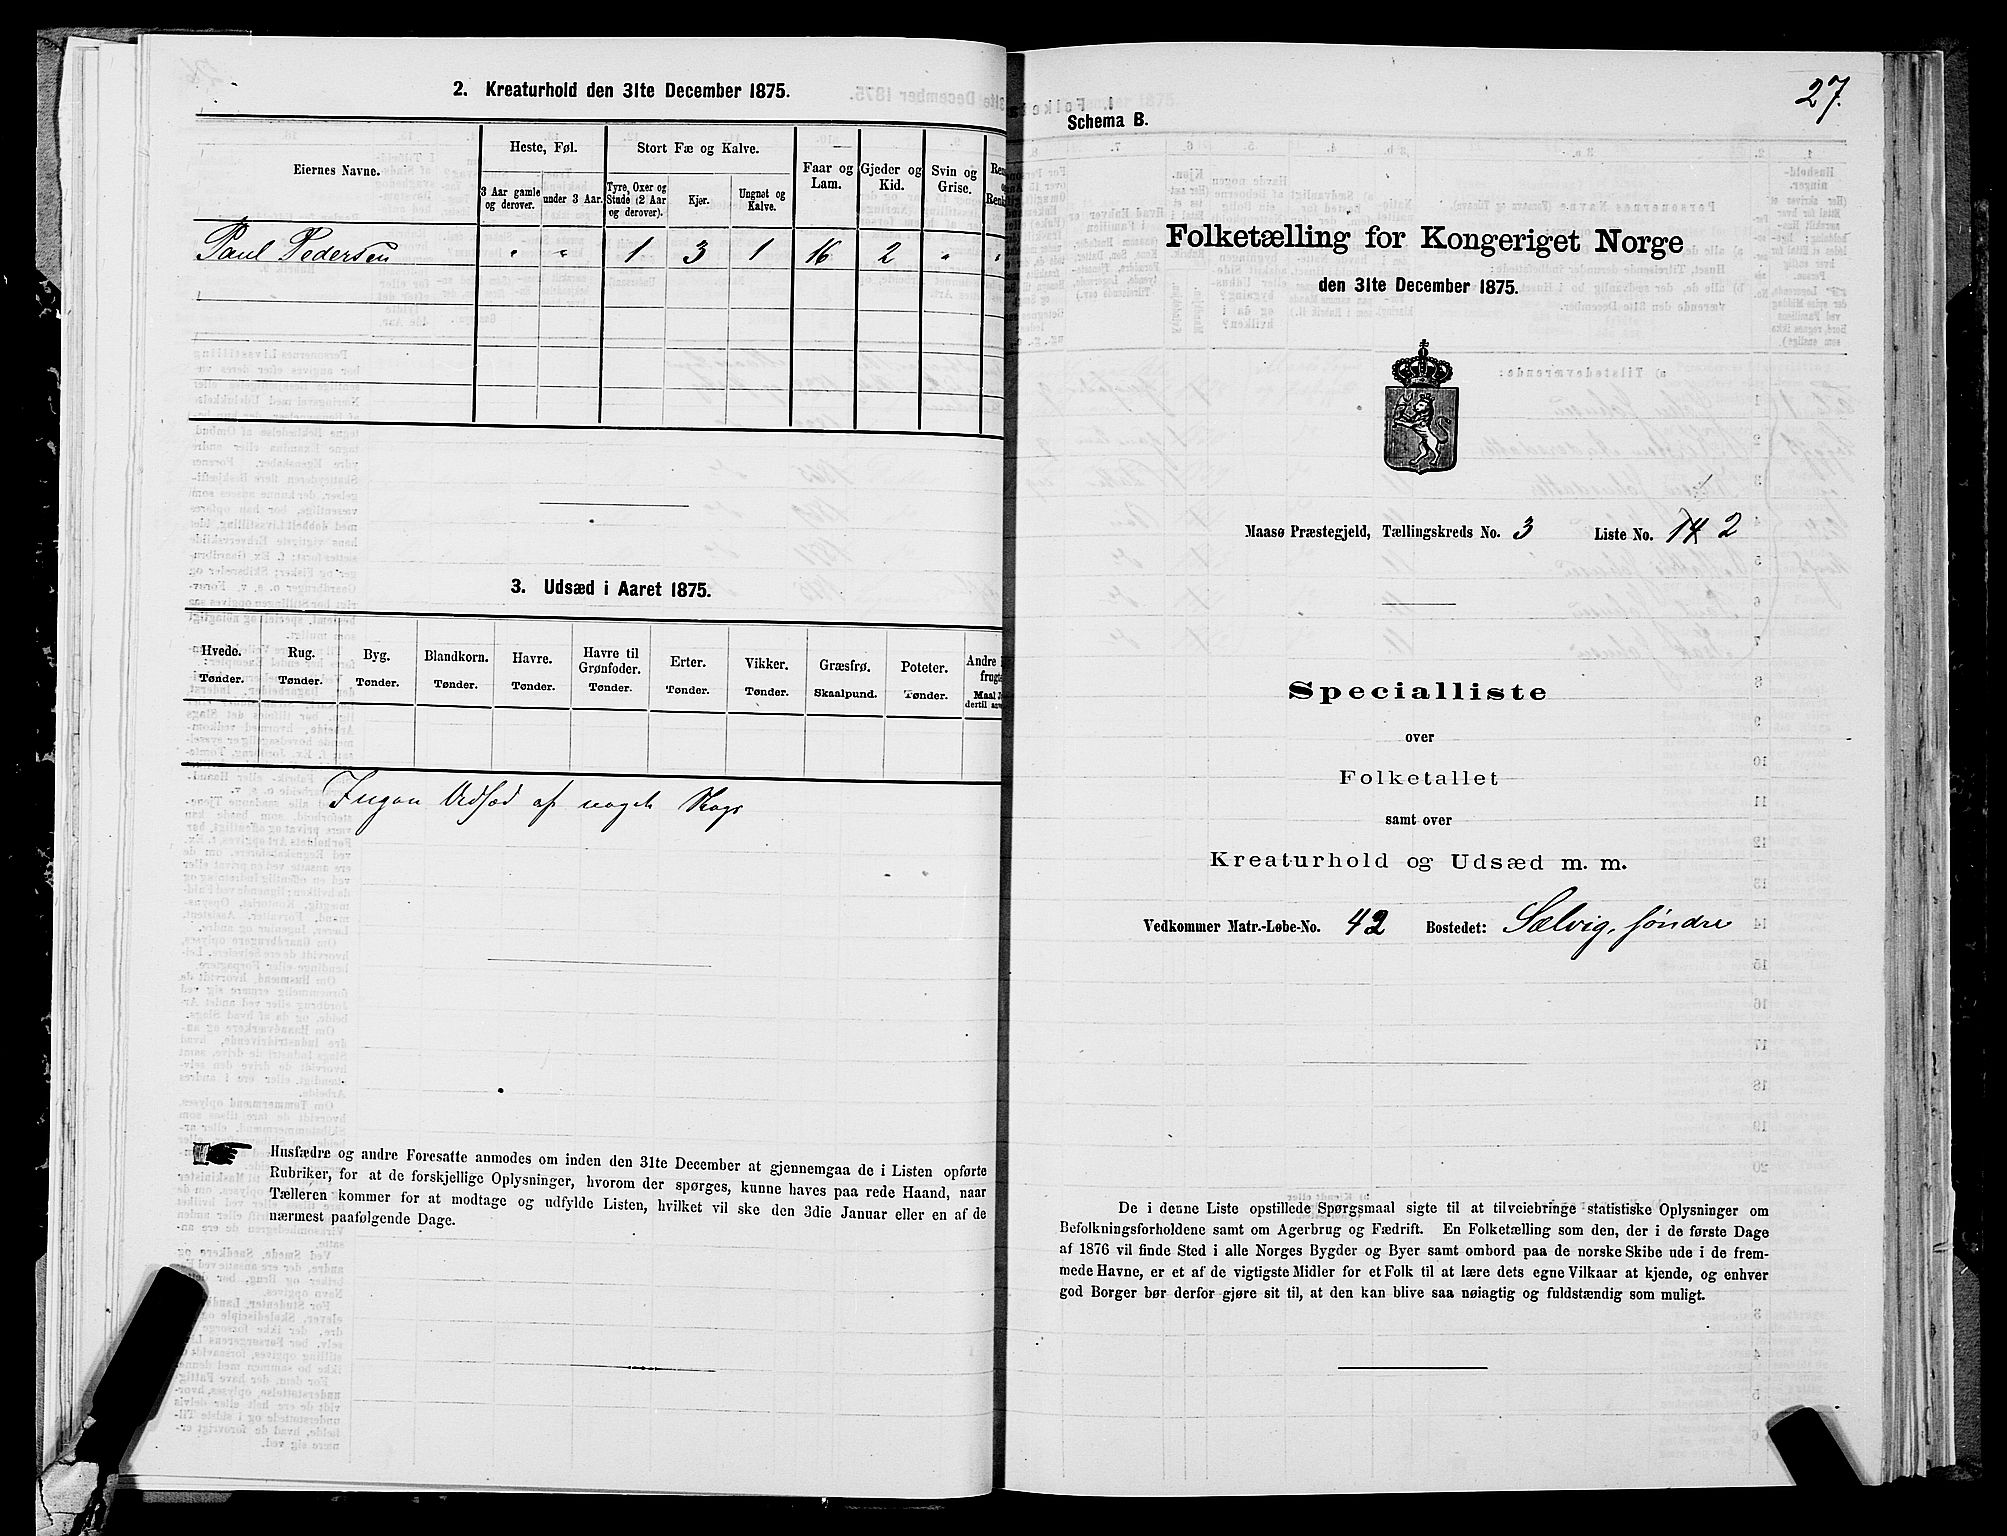 2. Kreaturhold den 31te December 1875.
Eiernes Navne.
Heste, Føl.
Stort Fæ og Kalve.
Faar og Lam.
Gjeder og Kid.
Svin og Grise.
3 Aar gamle og derover.
under 3 Aar.
Tyre, Oxer og Stude (2 Aar og derover).
Kjør.
Ungnøt og Kalve.
Paul Pedersen " " 1 3 1 16 2 " "
3. Udsæd i Aaret 1875.
Hvede. Rug. Byg. Blandkorn. Havre. Havre til Grønfoder. Erter. Vikker. Græsfrø. Poteter. Andre
Tønder. Tønder. Tønder. Tønder. Tønder. Tønder. Tønder. Tønder. Skaalpund. Tønder.
Ingen Udsæd af noget Slags
Husfædre og andre Foresatte anmodes om inden den 31te December at gjennemgaa de i Listen opførte
Rubriker, for at de forskjellige Oplysninger, hvorom der spørges, kunne haves paa rede Haand, naar
Tælleren kommer for at modtage og udfylde Listen, hvilket vil ske den 3die Januar eller en af de
nærmest paafølgende Dage.
27.
Schema B.
Folketælling for Kongeriget Norge
den 31te December 1875.
Maasø Præstegjeld, Tællingskreds No. 3 Liste No. 2
Specialliste
over
Folketallet
samt over
Kreaturhold og Udsæd m. m.
Vedkommer Matr.-Løbe-No. 42 Bostedet: Sælvig, søndre
De i denne Liste opstillede Spørgsmaal sigte til at tilveiebringe statistiske Oplysninger om
Befolkningsforholdene samt om Agerbrug og Fædrift. En Folketælling som den, der i de første Dage
af 1876 vil finde Sted i alle Norges Bygder og Byer samt ombord paa de norske Skibe ude i de frem-
mede Havne, er et af de vigtigste Midler for et Folk til at lære dets egne Vilkaar at kjende, og enhver
god Borger bør derfor gjøre sit til, at den kan blive saa nøiagtig og fuldstændig som muligt.